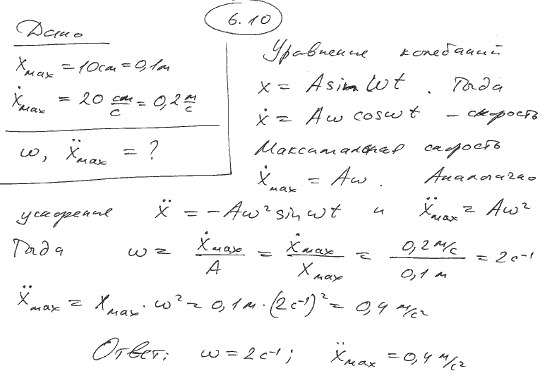 6.10
Дано
x_max = 10 см = 0,1 м
ẋ_max = 20 см/с = 0,2 м/с
ω, ẍ_max = ?
Уравнение колебаний
x = A sin ωt. Тогда
ẋ = Aω cos ωt – скорость
Максимальная скорость
ẋ_max = Aω. Аналогично
ускорение ẍ = -Aω² sin ωt и ẍ_max = Aω²
Тогда ω = ẋ_max/A = ẋ_max/x_max = 0,2 м/с / 0,1 м = 2 с⁻¹
ẍ_max = x_max · ω² = 0,1 м · (2 с⁻¹)² = 0,4 м/с²
Ответ: ω = 2 с⁻¹; ẍ_max = 0,4 м/с²